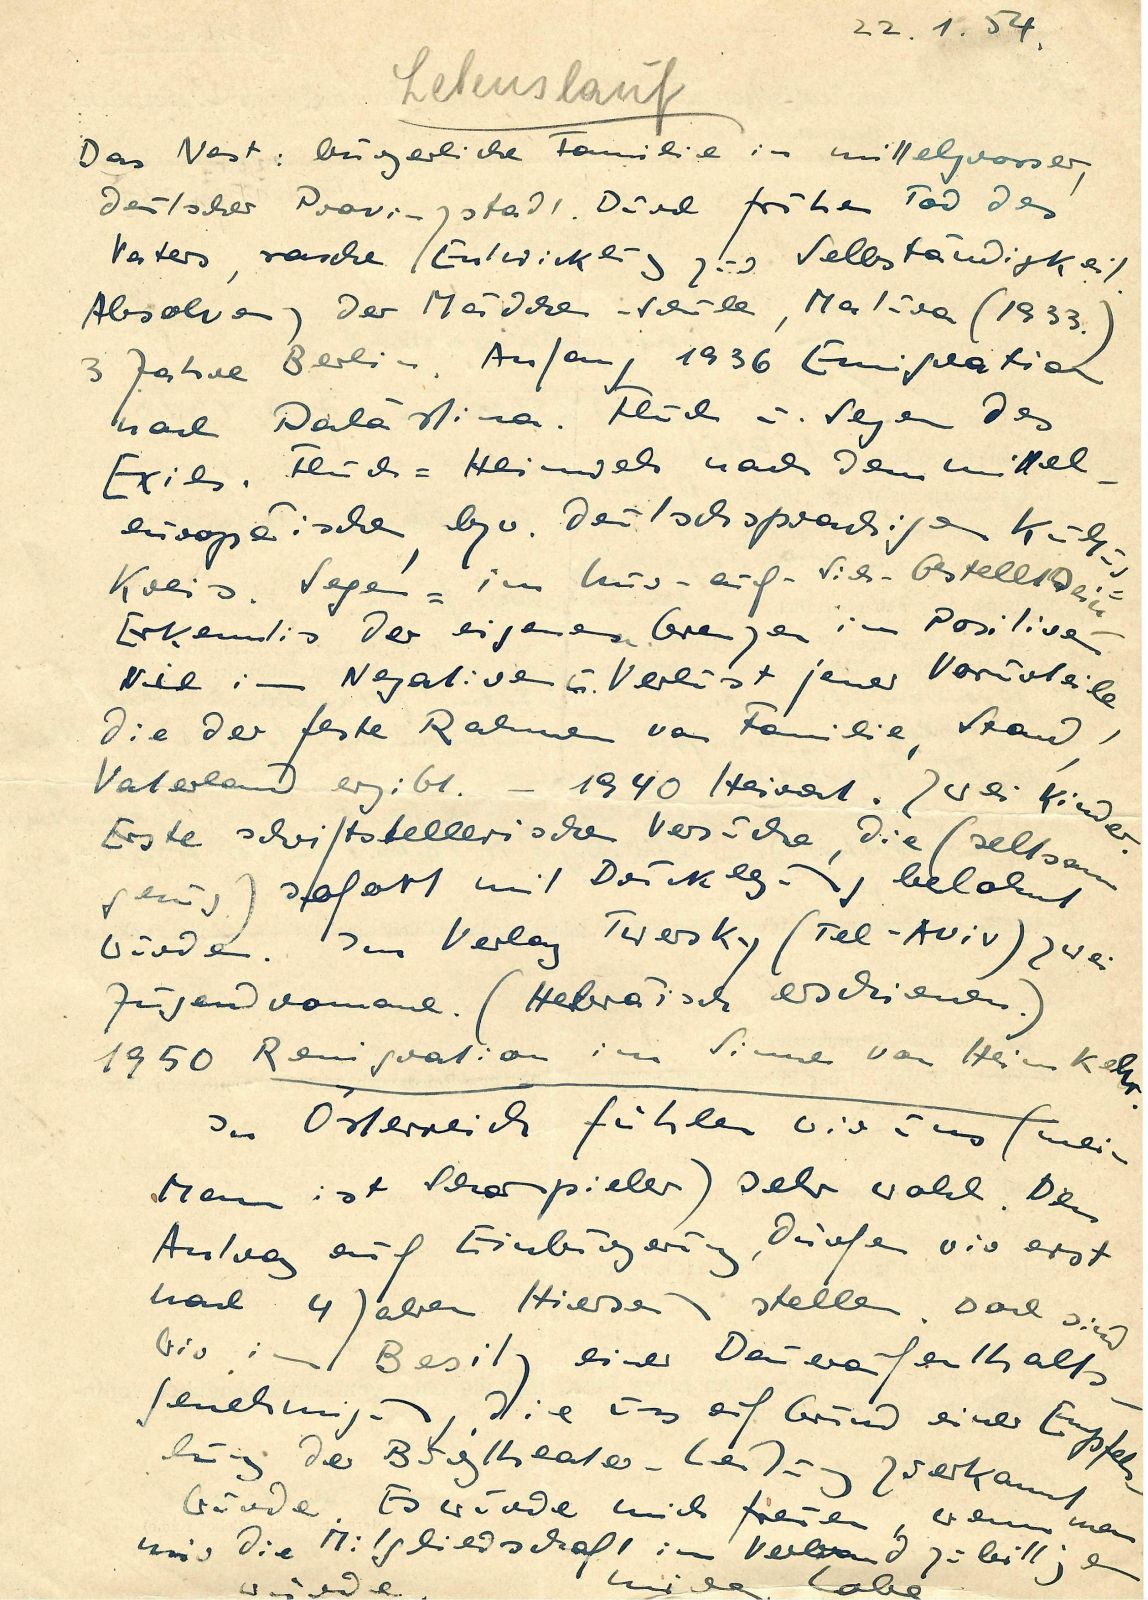 22. 1. 54.
Lebenslauf
Das Nest: bürgerliche Familie in mittelgrosser,
deutscher Provinzstadt. Durch frühen Tod des
Vaters, rasche Entwicklung zur Selbständigkeit.
Absolvenz der Mädchen-schule, Matura (1933.)
3 Jahre Berlin. Anfang 1936 Emigration
nach Palästina. Fluch u. Segen des
Exils. Fluch = Heimweh nach dem mittel-
europäischen, bzw. deutschsprachigen Kultur
Kreis. Segen = im nur-auf-sich-Gestelltsein
Erkenntnis der eigenen Grenzen im Positiven
wie im Negativen u. Verlust jener Vorurteile
die der feste Rahmen von Familie, Stand,
Vaterland ergibt. - 1940 Heirat. Zwei Kinder.
Erste schriftstellerische Versuche, die (seltsam
genug) sofort mit Drucklegung belohnt
wurden. Im Verlag Twersky (Tel-Aviv) zwei
Jugendromane. (Hebräisch erschienen.)
1950 Remigration im Sinne von Heimkehr.
In Österreich fühlen wir uns (mein
Mann ist Schauspieler) sehr wohl. Den
Antrag auf Einbürgerung, dürfen wir erst
nach 4 Jahren Hiersein stellen, doch sind
wir im Besitz einer Daueraufenthalts-
genehmigung, die uns auf Grund einer Empfeh-
lung der Burgtheater-Leitung zuerkannt
wurde. Es würde mich freuen, wenn man
mir die Mitgliedschaft im Verband zubilligen
würde. Mira Lobe